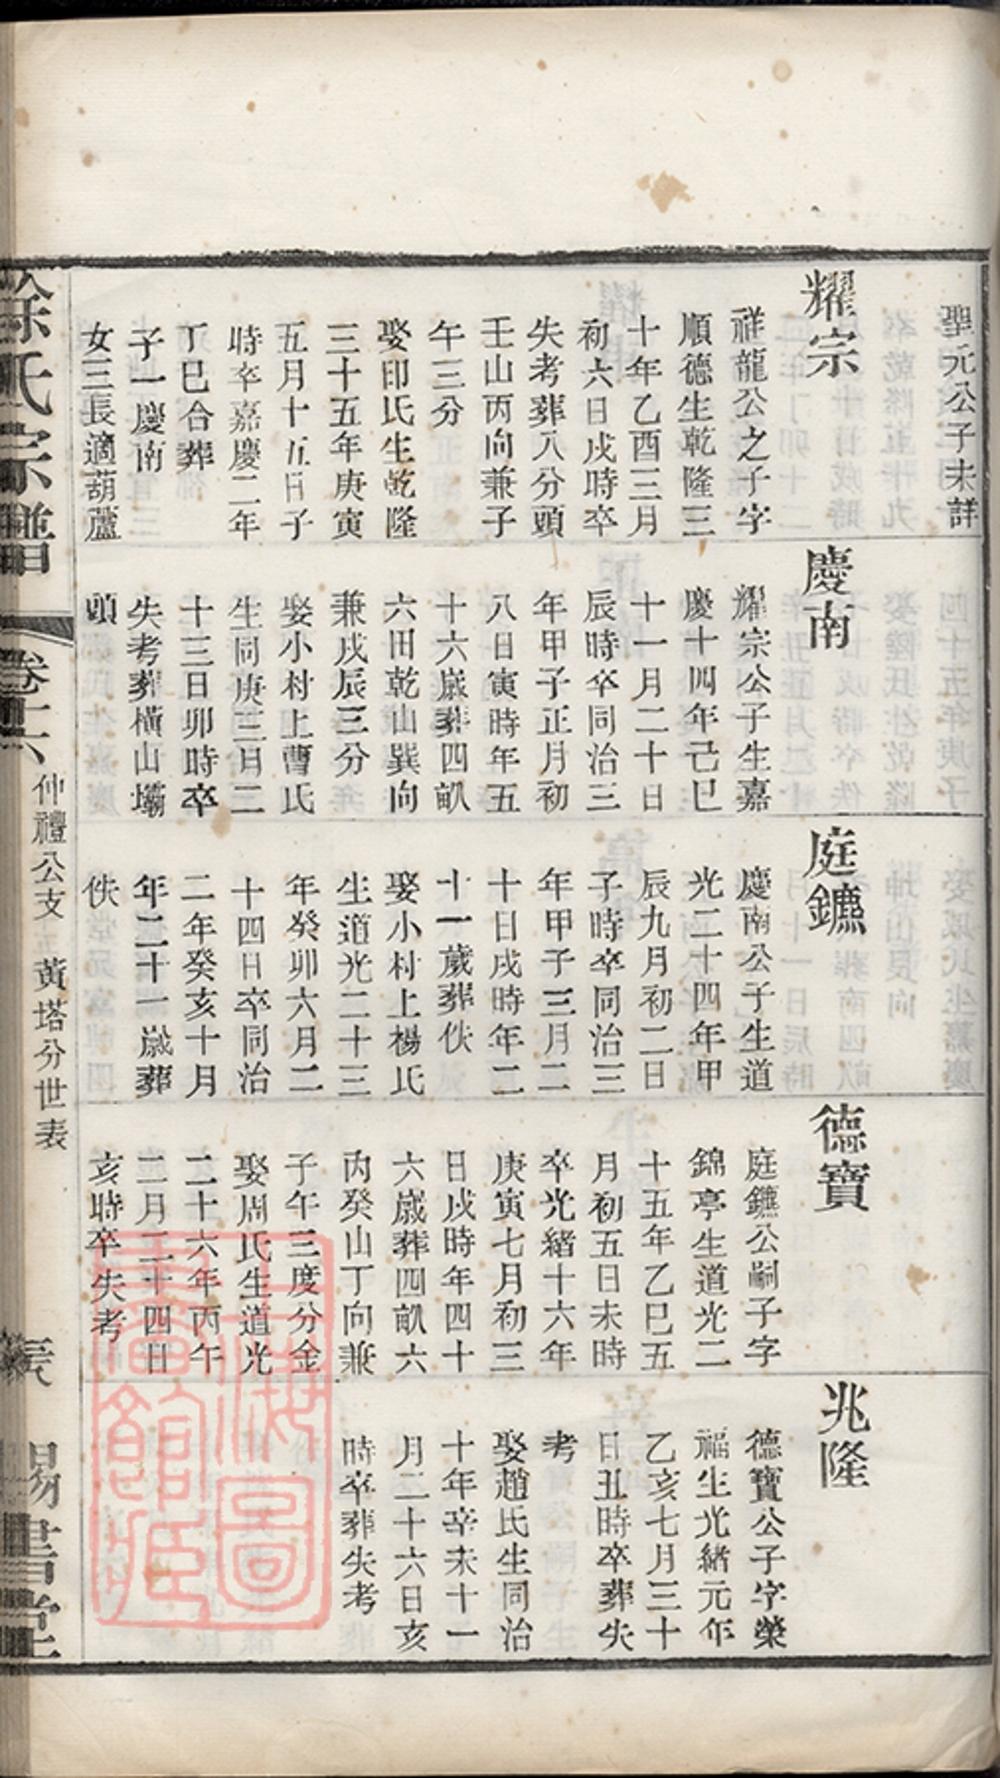 聖元公子未詳
耀宗
祥龍公之子字
順德生乾隆三
十年乙酉三月
初六日戌時卒
失考葬八分頭
壬山丙向兼子
午三分
娶印氏生乾隆
三十五年庚寅
五月十五日子
時卒嘉慶二年
丁巳合葬
子一慶南
女三長適葫蘆
慶南
耀宗公子生嘉
慶十四年己巳
十一月二十日
辰時卒同治三
年甲子正月初
八日寅時年五
十六歲葬四畝
六田乾山巽向
兼戌辰三分
娶小村上曹氏
生同庚三月二
十三日卯時卒
失考葬橫山壩
頭
庭鑣
慶南公子生道
光二十四年甲
辰九月初二日
子時卒同治三
年甲子三月二
十日戌時年二
十一歲葬佚
娶小村上楊氏
生道光二十三
年癸卯六月二
十四日卒同治
二年癸亥十月
年二十一歲葬
佚
德寶
庭鑣公嗣子字
錦亭生道光二
十五年乙巳五
月初五日未時
卒光緒十六年
庚寅七月初三
日戌時年四十
六歲葬四畝六
內癸山丁向兼
子午三度分金
娶周氏生道光
二十六年丙午
二月二十四日
亥時卒失考
兆隆
德寶公子字榮
福生光緒元年
乙亥七月三十
日丑時卒葬失
考
娶趙氏生同治
十年辛未十一
月二十六日亥
時卒葬失考
徐氏宗譜
卷十六
仲禮公支 黃塔分世表
錫書堂